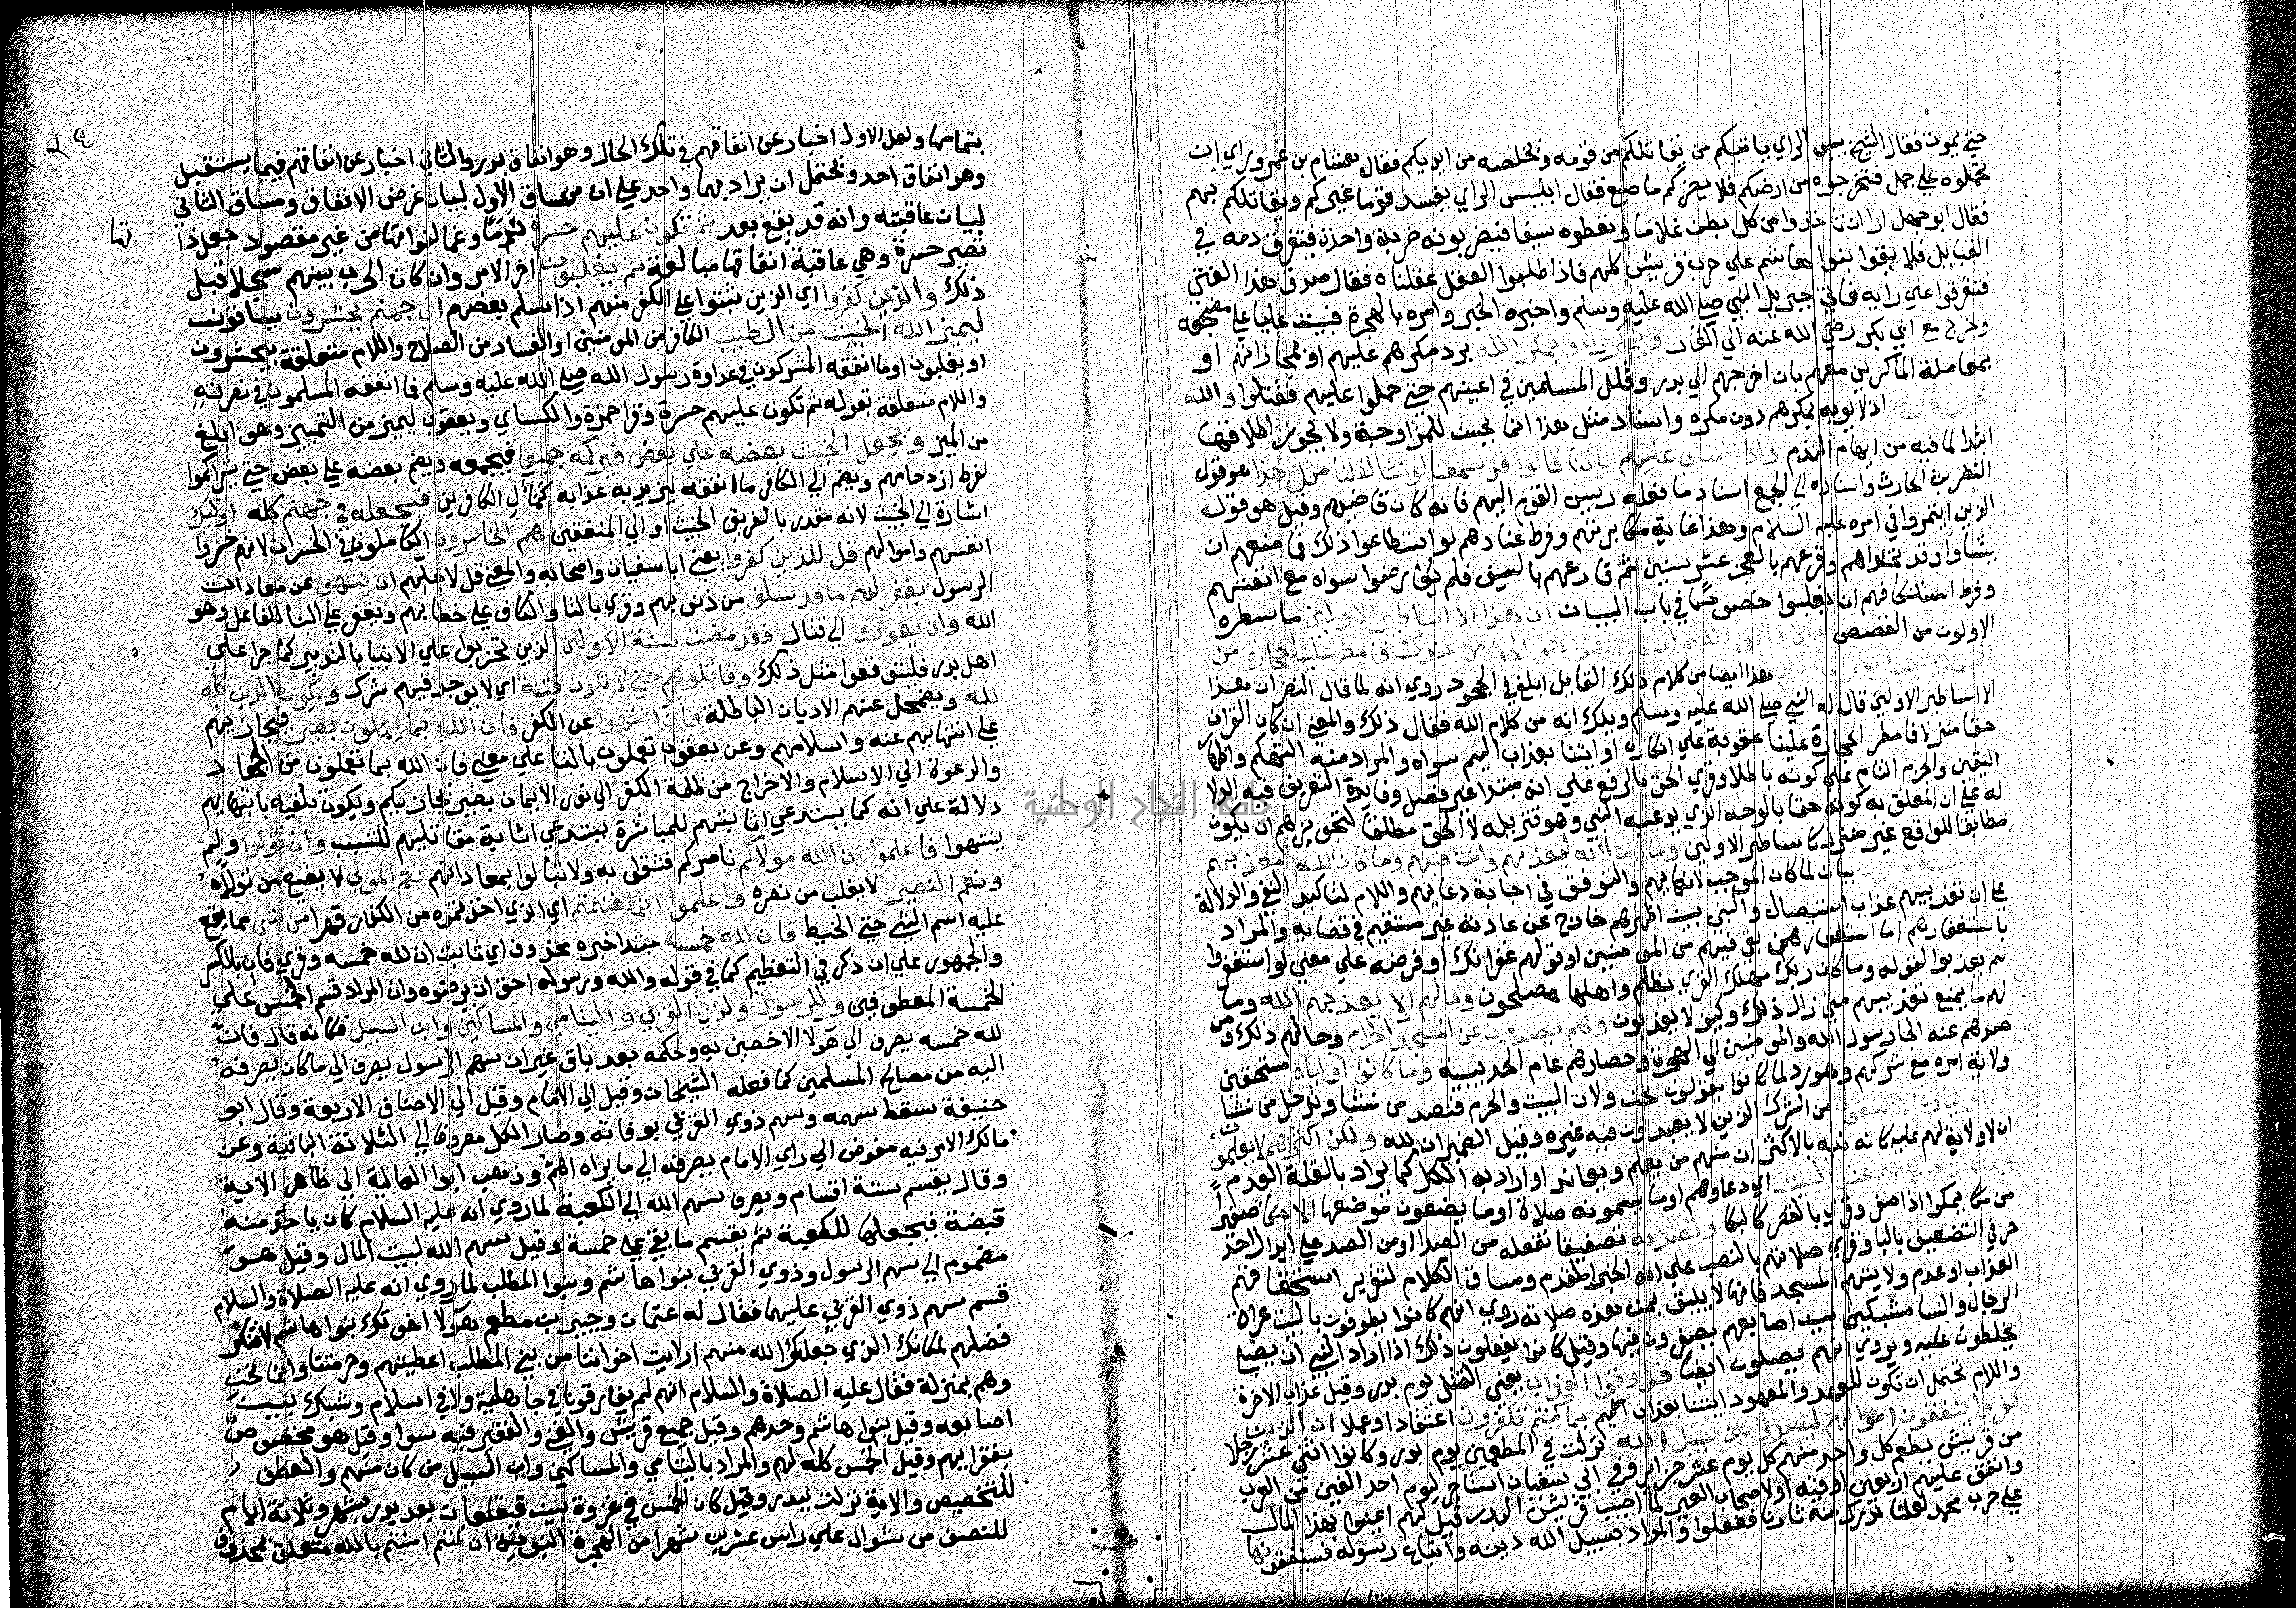 حتي يموت فقال الشيخ بيس الراي ياتيكم من يقاتلكم من قومه ويخلصه من ايديكم فقال هشام بن عمرو رايي ان
تحملوه علي جمل فتخرجوه من ارضكم فلا يضركم ما صنع فقال ابليس بيس الراي يفسد قوما غيركم ويقاتلكم بهم
فقال ابو جهل اري ان تاخذوا من كل بطن غلاما وتعطوه سيفا فيضربونه ضربة واحدة فيتفرق دمه في
القبايل فلا يقوا بنوا هاشم علي حرب قريش كلهم فاذا طلبوا العقل عقلناه فقال صدق هذا الفتي
فتفرقوا علي رايه فاتي جبريل النبي صلي الله عليه وسلم واخبره الخبر وامره بالهجرة فبيت عليا علي مضجعه
وخرج مع ابي بكر رضي الله عنه الي الغار ويمكرون ويمكر الله برد مكرهم عليهم او بمجازاتهم او
بمعاملة الماكرين معهم بان اخرجهم الي بدر وقلل المسلمين في اعينهم حتي حملوا عليهم فقتلوا والله
خير الماكرين اذ لا يوبه بمكرهم دون مكره واسناد مثل هذا انما يحسن للمزاوجة ولا يجوز اطلاقها
ابتدا لما فيه من ايهام الذم واذا تتلي عليهم اياتنا قالوا قد سمعنا لو نشا لقلنا مثل هذا هو قول
النضر بن الحارث واسناده الي الجمع اسناد ما فعله رييس القوم اليهم فانه كان قاضيهم وقيل هو قول
الذين ايتمروا في امره عليه السلام وهذا غاية مكابرتهم وفرط عنادهم لو استطاعوا ذلك فما منعهم ان
يشاوا وقد تحداهم وقرعهم بالعجز عشر سنين ثم قارعهم بالسيف فلم يعارضوا سواه مع انفتهم
وفرط استنكافهم ان يغلبوا خصوصا في باب البيان ان هذا الا اساطير الاولين ما سطره
الاولون من القصص واذ قالوا اللهم ان كان هذا هو الحق من عندك فامطر علينا حجارة من
السما او ايتنا بعذاب اليم هذا ايضا من كلام ذلك القايل ابلغ في الجحود روي انه لما قال النضر ان هذا
الا اساطير الاولين قال له النبي صلي الله عليه وسلم ويلك انه من كلام الله فقال ذلك والمعني ان كان القران
حقا منزلا فامطر الحجارة علينا عقوبة علي انكاره او ايتنا بعذاب اليم سواه والمراد منه التهكم واظهار
اليقين والجزم التام علي كونه باطلا وقري الحق بالرفع علي انه مبتدا غير فصل وفايدة التعريف فيه الدلا
له علي ان المعلق به كونه حقا بالوجه الذي يدعيه النبي وهو تنزيله لا الحق مطلقا لتجويزهم ان يكون
مطابقا للواقع غير منزل كاساطير الاولين وما كان الله ليعذبهم وانت فيهم وما كان الله معذبهم
وهم يستغفرون بيان لما كان الموجب لامهالهم والتوقف في اجابة دعايهم واللام لتاكيد النفي والدلالة
علي ان تعذيبهم عذاب استيصال والنبي بين اظهرهم خارج عن عادته غير مستقيم في قضايه والمراد
باستغفارهم اما استغفار من بقي فيهم من المومنين او قولهم غفرانك او فرضه علي معني لو استغفروا
لم يعذبوا لقوله وما كان ربك مهلك القري بظلم واهلها مصلحون وما لهم الا يعذبهم الله وما
لهم مما يمنع تعذيبهم متي زال ذلك وكيف لا يعذبون وهم يصدون عن المسجد الحرام وحالهم ذلك ومن
صدهم عنه الجا رسول الله والمومنين الي الهجرة وحصارهم عام الحديبية وما كانوا اولياه مستحقين
ولاية امره مع شركهم وهو رد لما كانوا يقولون نحن ولاة البيت والحرم فنصد من نشا وندخل من نشا
ان اولياوه الا المتقون من الشرك الذين لا يعبدون فيه غيره وقيل الضميران لله ولكن اكثرهم لا يعلمون
ان لا ولاية لهم عليه كانه نبه بالاكثر ان منهم من يعلم ويعاند او اراد به الكل كما يراد بالقلة العدم
وما كان صلاتهم عند البيت اي دعاوهم او ما يسمونه صلاة او ما يضعون موضعها الا مكا صفيرا
من مكا يمكوا اذا صفر وقري بالقصر كالبكا وتصدية تصفيقا تفعله من الصدا او من الصد علي ابدال احد
حرفي التضعيف باليا وقري صلاتهم بالنصب علي انه الخبر المقدم ومساق الكلام لتقرير استحقاقهم
العذاب او عدم ولايتهم المسجد فانها لا يليق بمن هذه صلاته روي انهم كانوا يطوفون بالبيت عراة
الرجال والنسا مشبكين بين اصابعهم يصفرون فيها وقيل كانوا يفعلون ذلك اذا اراد النبي ان يصلي
يخلطون عليه ويروون انهم يصلون ايضا فذوقوا العذاب يعني القتل يوم بدر وقيل عذاب الاخرة
واللام تحتمل ان تكون للعهد والمعهود ايتنا بعذاب اليم بما كنتم تكفرون اعتقادا وعملا ان الذين
كفروا ينفقون اموالهم ليصدوا عن سبيل الله نزلت في المطعمين يوم بدر وكانوا اثني عشر رجلا
من قريش يطعم كل واحد منهم كل يوم عشر جزاير وفي ابي سفيان استاجر ليوم احد الفين من العرب
وانفق عليهم اربعين اوقية او لاصحاب العير لما اصيب قريش ببدر قيل لهم اعينوا بهذا المال
علي حرب محمد لعلنا ندرك منه ثارنا ففعلوا والمراد بسبيل الله دينه واتباع رسوله فسينفقونها
بتمامها ولعل الاول اخبار عن انفاقهم في تلك الحال وهو انفاق بدر والثاني اخبار عن انفاقهم فيما يستقبل
وهو انفاق احد ويحتمل ان يراد بهما واحد علي ان مساق الاول لبيان غرض الانفاق ومساق الثاني
لبيان عاقبته وانه قد يقع بعد ثم تكون عليهم حسرة ندما وغما لفواتها من غير مقصود جعل ذاتها
تصير حسرة وهي عاقبة انفاقها مبالغة ثم يغلبون اخر الامر وان كان الحرب بينهم سجالا قبل
ذلك والذين كفروا اي الذين ثبتوا علي الكفر منهم اذ اسلم بعضهم الي جهنم يحشرون يساقون
ليميز الله الخبيث من الطيب الكافر من المومنين او الفساد من الصلاح واللام متعلقة بيحشرون
او يغلبون او ما انفقه المشركون في عداوة رسول الله صلي الله عليه وسلم مما انفقه المسلمون في نصرته
واللام متعلقة بقوله ثم تكون عليهم حسرة وقرا حمزة والكساي ويعقوب ليميز من التمييز وهو ابلغ
من الميز ويجعل الخبيث بعضه علي بعض فيركمه جميعا فيجمعه ويضم بعضه علي بعض حتي يتراكموا
لفرط ازدحامهم ويضم الي الكافر ما انفقه ليزيد به عذابه كمال الكافرين فيجعله في جهنم كله اوليك
اشارة الي الخبيث لانه مقدر بالفريق الخبيث او الي المنفقين هم الخاسرون الكاملون في الخسران لانهم خسروا
انفسهم واموالهم قل للذين كفروا يعني ابا سفيان واصحابه والمعني قل لاجلهم ان ينتهوا عن معادات
الرسول يغفر لهم ما قد سلف من ذنوبهم وقري بالتا والكاف علي خطابهم ويغفر علي البنا للفاعل وهو
الله وان يعودوا الي قتاله فقد مضت سنة الاولين الذين تحزبوا علي الانبيا بالتدمير كما جرا علي
اهل بدر فليتوقعوا مثل ذلك وقاتلوهم حتي لا تكون فتنة اي لا يوجد فيهم شرك ويكون الدين كله
لله ويضمحل عنهم الاديان الباطلة فان انتهوا عن الكفر فان الله بما يعملون بصير فيجازيهم
علي انتهايهم عنه واسلامهم وعن يعقوب تعملون بالتا علي معني فان الله بما تعملون من الجهاد
والدعوة الي الاسلام والاخراج من ظلمة الكفر الي نور الايمان بصير يجازيكم ويكون تعليقه بانتهايهم
دلالة علي انه كما يستدعي اثابتهم للمباشرة يستدعي اثابة مقاتليهم للتسبب وان تولوا ولم
ينتهوا فاعلموا ان الله مولاكم ناصركم فثقوا به ولا تبالوا بمعاداتهم نعم المولي لا يضيع من تولاه
ونعم النصير لا يغلب من نصره واعلموا انما غنمتم اي الذي اخذتموه من الكفار قهرا من شي مما يقع
عليه اسم الشي حتي الخيط فان لله خمسه مبتدا خبره محذوف اي ثابت ان لله خمسه وقري فان بالكسر
والجمهور علي ان ذكر في التعظيم كما في قوله والله ورسوله احق ان يرضوه وان المراد قسم الخمس علي
الخمسة المعطوفين وللرسول ولذي القربي واليتامي والمساكين وابن السبيل فكانه قال فان
لله خمسه يصرف الي هولا الاخصين به وحكمه بعد باق غير ان سهم الرسول يصرف الي ما كان يصرفه
اليه من مصالح المسلمين كما فعله الشيخان وقيل الي الامام وقيل الي الاصناف الاربعة وقال ابو
حنيفة سقط سهمه وسهم ذوي القربي بوفاته وصار الكل مصروفا الي الثلاثة الباقية وعن
مالك الامر فيه مفوض الي راي الامام يصرفه الي ما يراه اهم وذهب ابوا العالية الي ظاهر الاية
وقال يقسم ستة اقسام ويصرف سهم الله الي الكعبة لما روي انه عليه السلام كان ياخذ منه
قبضة فيجعلها للكعبة ثم يقسم ما بقي علي خمسة وقيل سهم الله لبيت المال وقيل هو
مضموم الي سهم الرسول وذوي القربي بنوا هاشم وبنوا المطلب لما روي انه عليه الصلاة والسلام
قسم سهم ذوي القربي عليهما فقال له عثمان وجبير بن مطعم هولا اخوتك بنوا هاشم لا ننكر
فضلهم لمكانك الذي جعلك الله منهم ارايت اخواننا من بني المطلب اعطيتهم وحرمتنا وانما نحن
وهم بمنزلة فقال عليه الصلاة والسلام انهم لم يفارقونا في جاهلية ولا في اسلام وشبك بين
اصابعه وقيل بنوا هاشم وحدهم وقيل جميع قريش والغني والفقير فيه سوا وقيل هو مخصوص
بفقرايهم وقيل الخمس كله لهم والمراد باليتامي والمساكين وابن السبيل من كان منهم والعطف
للتخصيص والاية نزلت ببدر وقيل كان الخمس في غزوة بني قينقاع بعد بدر بشهر وثلاثة ايام
للنصف من شوال علي راس عشرين شهرا من الهجرة ان كنتم امنتم بالله متعلق بمحذوف
جامعة النجاح الوطنية